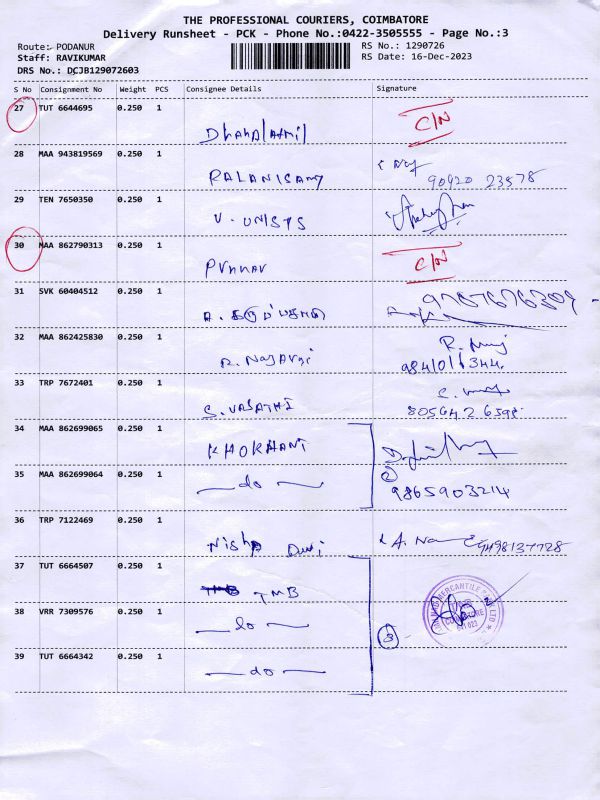 THE PROFESSIONAL COURIERS, COIMBATORE
Delivery Runsheet - PCK - Phone No.:0422-3505555 - Page No.:3
Route: PODANUR
RS No.: 1290726
Staff: RAVIKUMAR
RS Date: 16-Dec-2023
DRS No.: DCJB129072603
S No Consignment No Weight PCS Consignee Details Signature
27 TUT 6644695 0.250 1 C/N
28 MAA 943819569 0.250 1
PALANISAMY 90420 23578
29 TEN 7650350 0.250 1
30 MAA 862790313 0.250 1 C/N
31 SVK 60404512 0.250 1
32 MAA 862425830 0.250 1
33 TRP 7672401 0.250 1
S. VASATHI
34 MAA 862699065 0.250 1 KHOKHANI
35 MAA 862699064 0.250 1 do 9865903214
36 TRP 7122469 0.250 1
Nisha Devi 9498137728
37 TUT 6664507 0.250 1
TMB
38 VRR 7309576 0.250 1 do 3
39 TUT 6664342 0.250 1 do